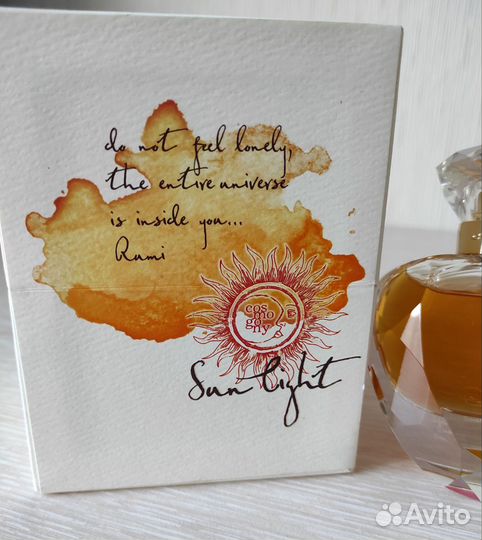 do not feel lonely,
the entire universe
is inside you...
Rumi
cos
mo
go
ny
Sun light
Avito